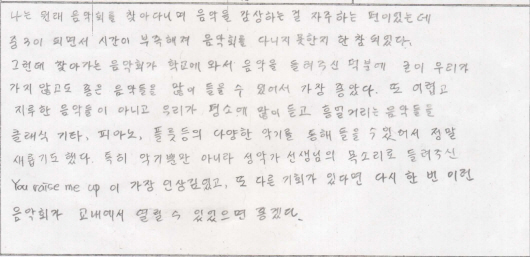 나는 원래 음악회를 찾아다니며 음악을 감상하는 걸 자주하는 편이었는데
중3이 되면서 시간이 부족해져 음악회를 다니지 못한지 한참 되었다.
그런데 찾아가는 음악회가 학교에 와서 음악을 들려주신 덕분에 굳이 우리가
가지 않고도 좋은 음악들을 많이 들을 수 있어서 가장 좋았다. 또 어렵고
지루한 음악들이 아니고 우리가 평소에 많이 듣고 흥얼거리는 음악들을
클래식 기타, 피아노, 플룻등의 다양한 악기를 통해 들을 수 있어서 정말
새롭기도 했다. 특히 악기뿐만 아니라 성악가 선생님의 목소리로 들려주신
You raice me up 이 가장 인상깊었고, 또 다른 기회가 있다면 다시 한 번 이런
음악회가 교내에서 열릴 수 있었으면 좋겠다.